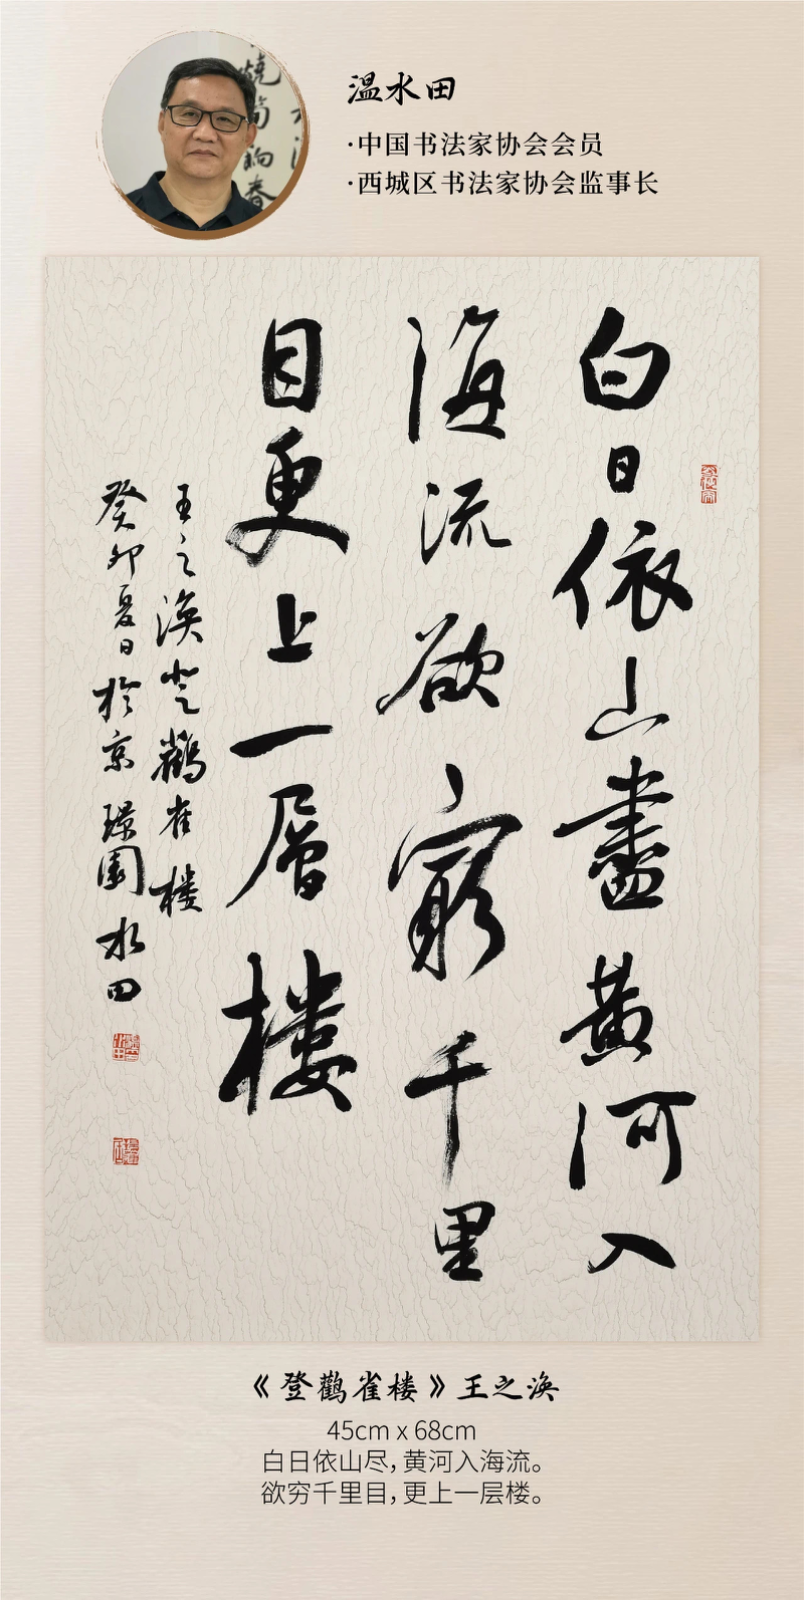 温水田
·中国书法家协会会员
·西城区书法家协会监事长
白日依山盡黄河入
海流欲窮千里
目更上一層楼
王之涣登鹳雀楼
癸卯夏日於京璟園水田
《登鹳雀楼》王之涣
45cm x 68cm
白日依山尽，黄河入海流。
欲穷千里目，更上一层楼。